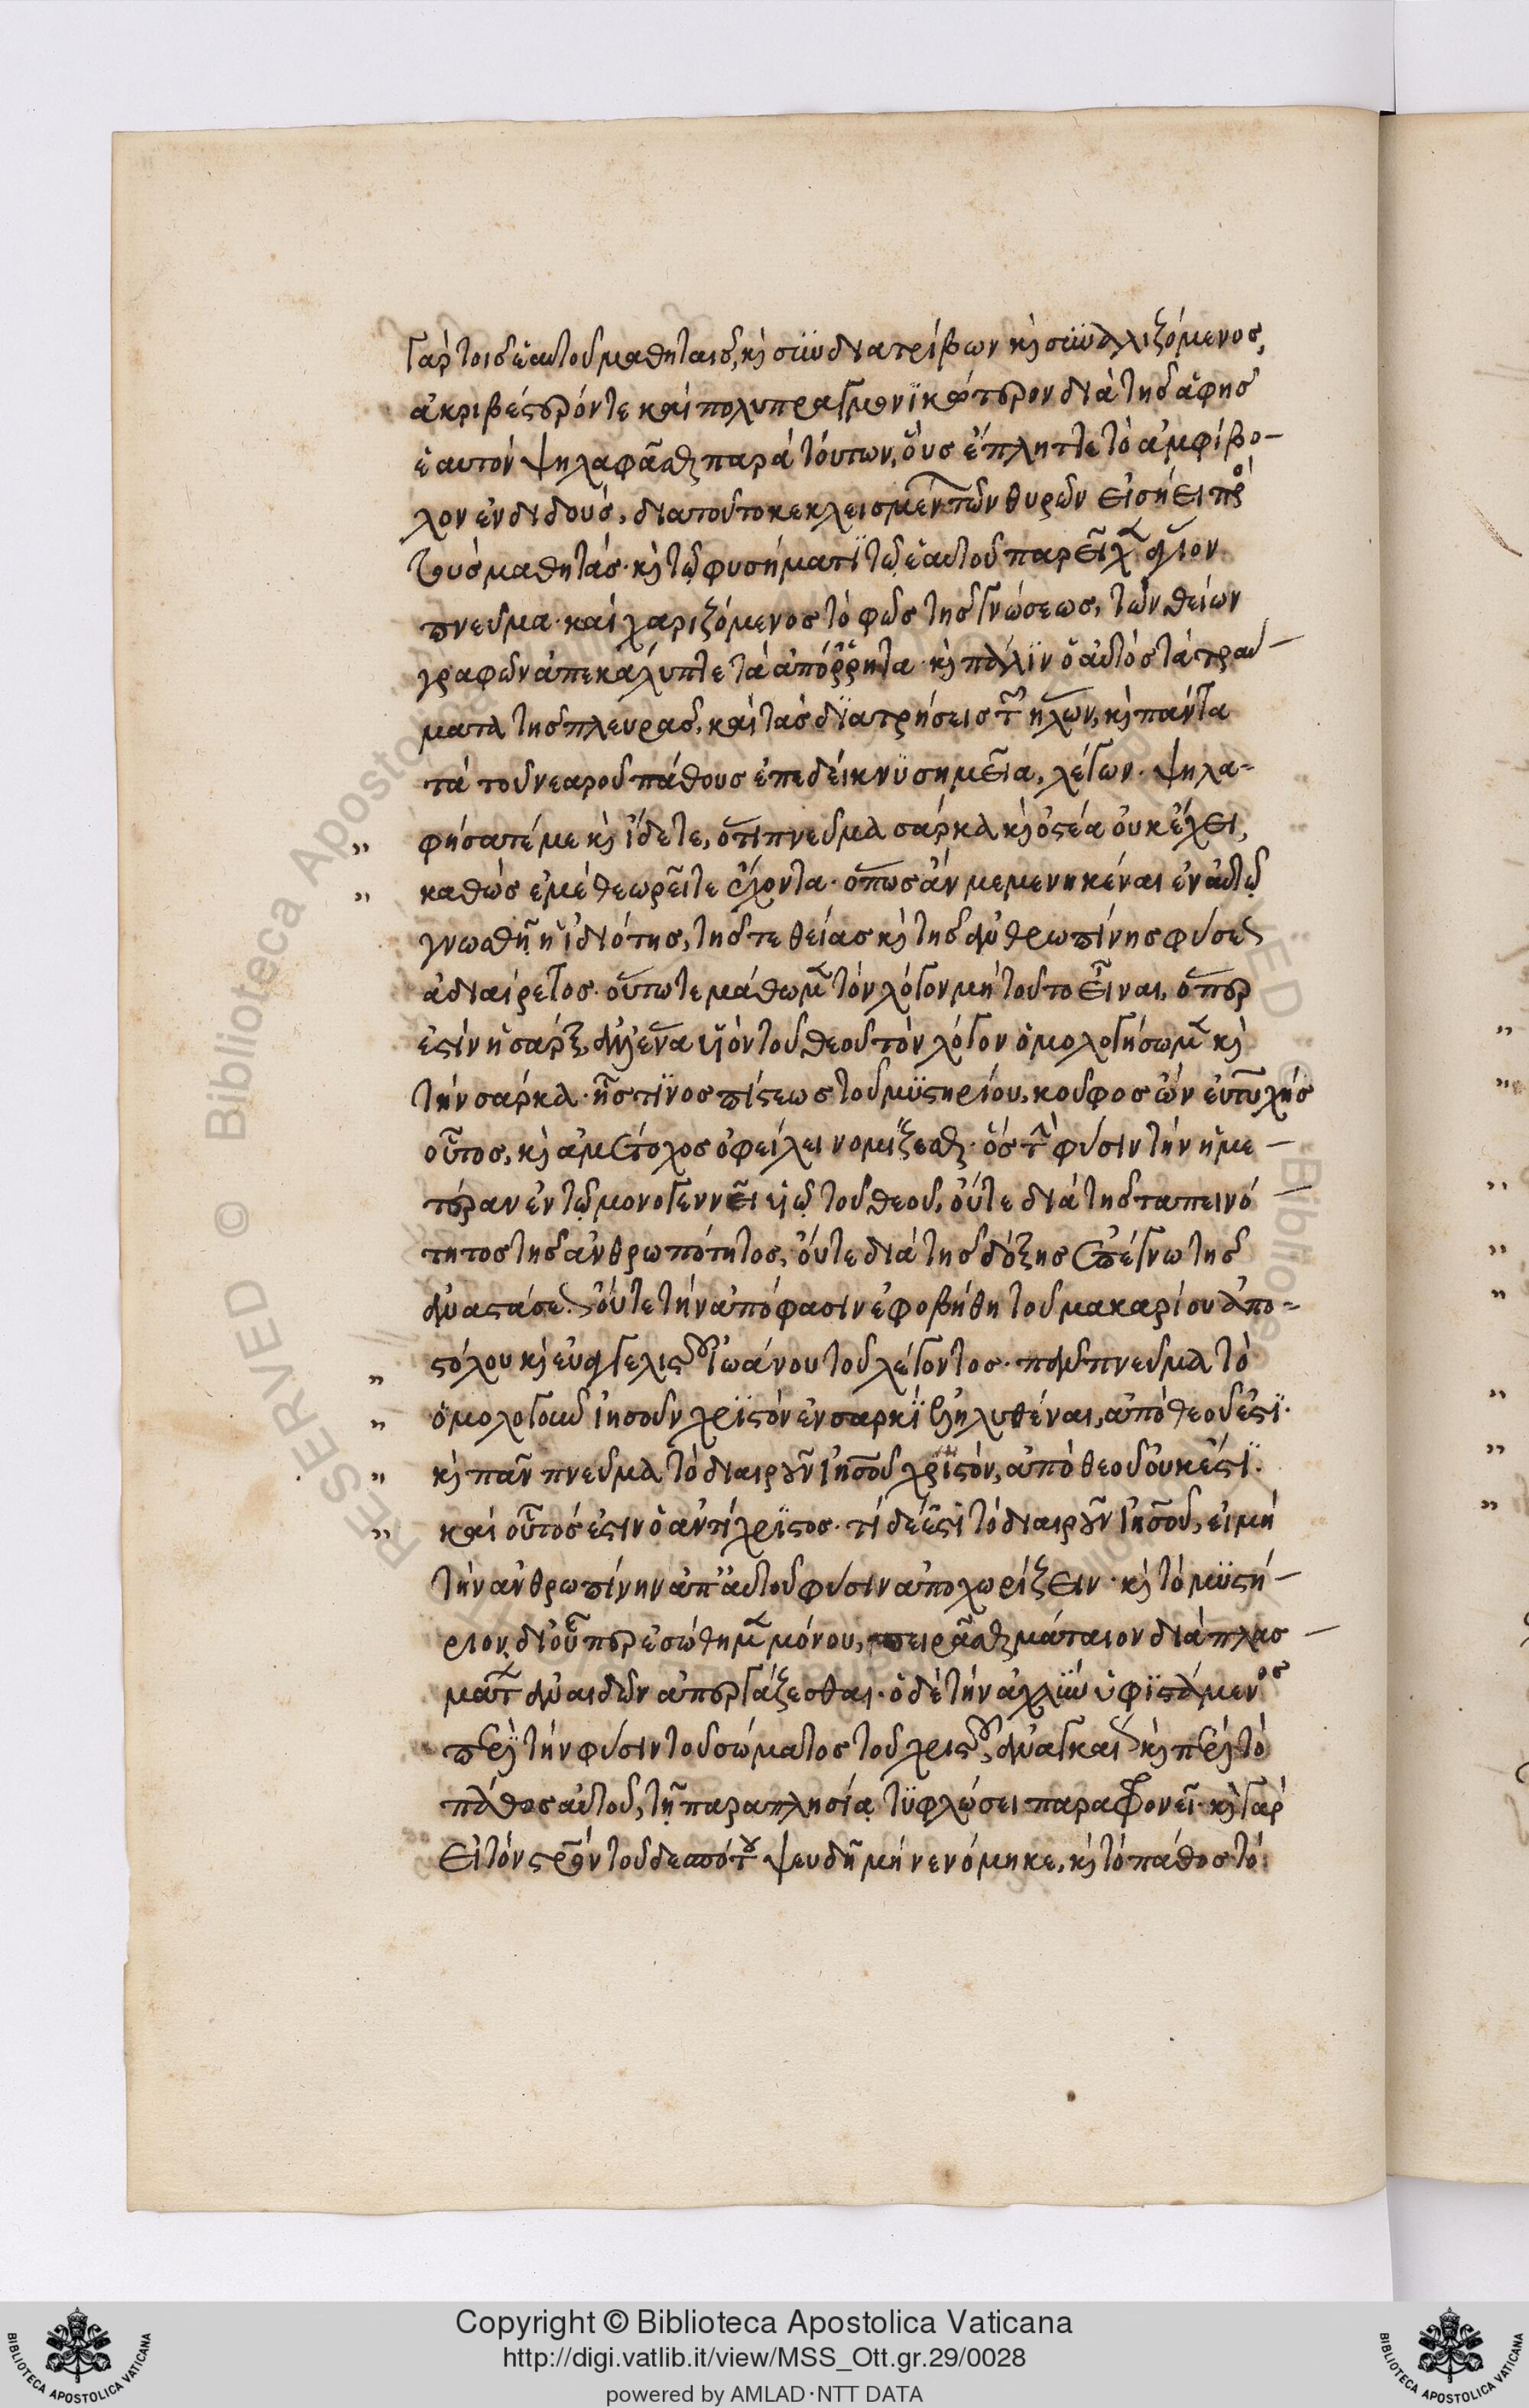 γὰρ τοῖς ἑαυτοῦ μαθηταῖς, κὶ συνδιατρίβων κὶ συναλιζόμενος,
ἀκριβέστερόν τε καὶ πολυπραγμονϊκώτερον διὰ τῆς ἁφῆς
ἑαυτὸν ψηλαφᾶσθαι παρὰ τούτων, οὓς ἔπληττε τὸ ἀμφίβο-
λον ἐνδιδούς, διατοῦτο κεκλεισμένων τῶν θυρῶν εἰσήει πρὸς
τοὺς μαθητάς· κὶ τῷ φυσήματϊ τῷ ἑαυτοῦ παρεῖχεν ἅγιον
πνεῦμα· καὶ χαριζόμενος τὸ φῶς τῆς γνώσεως, τῶν θείων
γραφῶν ἀπεκάλυπτε τὰ ἀπόῤῥητα· κὶ πάλϊν ὁ αὐτὸς τὰ τραύ-
ματα τῆς πλευρᾶς, καὶ τὰς δϊατρήσεις τῶν ἥλων, κὶ πάντα
τὰ τοῦ νεαροῦ πάθους ἐπεδείκνϋ σημεῖα, λέγων· ψηλα-
" φήσατέ με κὶ ἴδετε, ὅτι πνεῦμα σάρκα κὶ ὀστέα οὐκ ἔχει,
" καθὼς ἐμὲ θεωρεῖτε ἔχοντα· ὅπως ἂν μεμενηκέναι ἐν αὐτῷ
γνωσθῇ ἡ ἰδιότης, τῆς τε θείας κὶ τῆς ἀνθρωπίνης φύσεως
ἀδιαίρετος· οὕτω τε μάθωμεν τὸν λόγον μὴ τοῦτο εἶναι, ὅπερ
ἐστὶν ἡ σάρξ, ἀλλ' ἕνα υἱὸν τοῦ θεοῦ τὸν λόγον ὁμολογήσωμεν κὶ
τὴν σάρκα· ἧς τϊνος πίστεως τοῦ μϋστηρίου, κοῦφος ὢν εὐτυχὴς
οὗτος, κὶ ἀμέτοχος ὀφείλει νομίζεσθαι· ὃς τὴν φύσιν τὴν ἡμε-
τέραν ἐν τῷ μονογεννεῖ υἱῷ τοῦ θεοῦ, οὔτε διὰ τῆς ταπεινό-
τητος τῆς ἀνθρωπότητος, οὔτε διὰ τῆς δόξης ἐπέγνω τῆς
ἀναστάσεως. οὔτε τὴν ἀπόφασιν ἐφοβήθη τοῦ μακαρίου ἀπο-
" στόλου κὶ εὐαγγελιστοῦ Ἰωάνου τοῦ λέγοντος· πᾶν πνεῦμα τὸ
" ὁμολογοῦν ἰησοῦν χρϊστὸν ἐν σαρκϊ ἐληλυθέναι, ἀπὸ θεοῦ ἐστϊ·
" κὶ πᾶν πνεῦμα τὸ διαιροῦν Ἰησοῦ χρϊστὸν, ἀπὸ θεοῦ οὐκ ἔστϊ.
" καὶ οὗτός ἐστιν ὁ ἀντίχρϊστος· τί δὲ ἐστϊ τὸ διαιροῦν Ἰησοῦ, εἰ μὴ
τὴν ἀνθρωπίνην ἀπ' αὐτοῦ φύσιν ἀποχωρίζειν· κὶ τὸ μϋστή-
ριον, δι' οὗπερ ἐσώθημεν μόνου, πειρᾶσθαι μάταιον διὰ πλασ-
μάτων ἀναιδῶν ἀπεργάζεσθαι· ὁ δὲ τὴν ἀχλὺν ὑφϊστάμενος
περὶ τὴν φύσιν τοῦ σώματος τοῦ χριστοῦ, ἀναγκαίως κὶ περὶ τὸ
πάθος αὐτοῦ, τῇ παραπλησίᾳ τϋφλώσει παραφρονεῖ· κὶ γὰρ
εἰ τὸν σταυρὸν τοῦ δεσπότου ψευδῆ μὴ νενόμηκε, κὶ τὸ πάθος τὸ
Copyright © Biblioteca Apostolica Vaticana
http://digi.vatlib.it/view/MSS_Ott.gr.29/0028
powered by AMLAD·NTT DATA